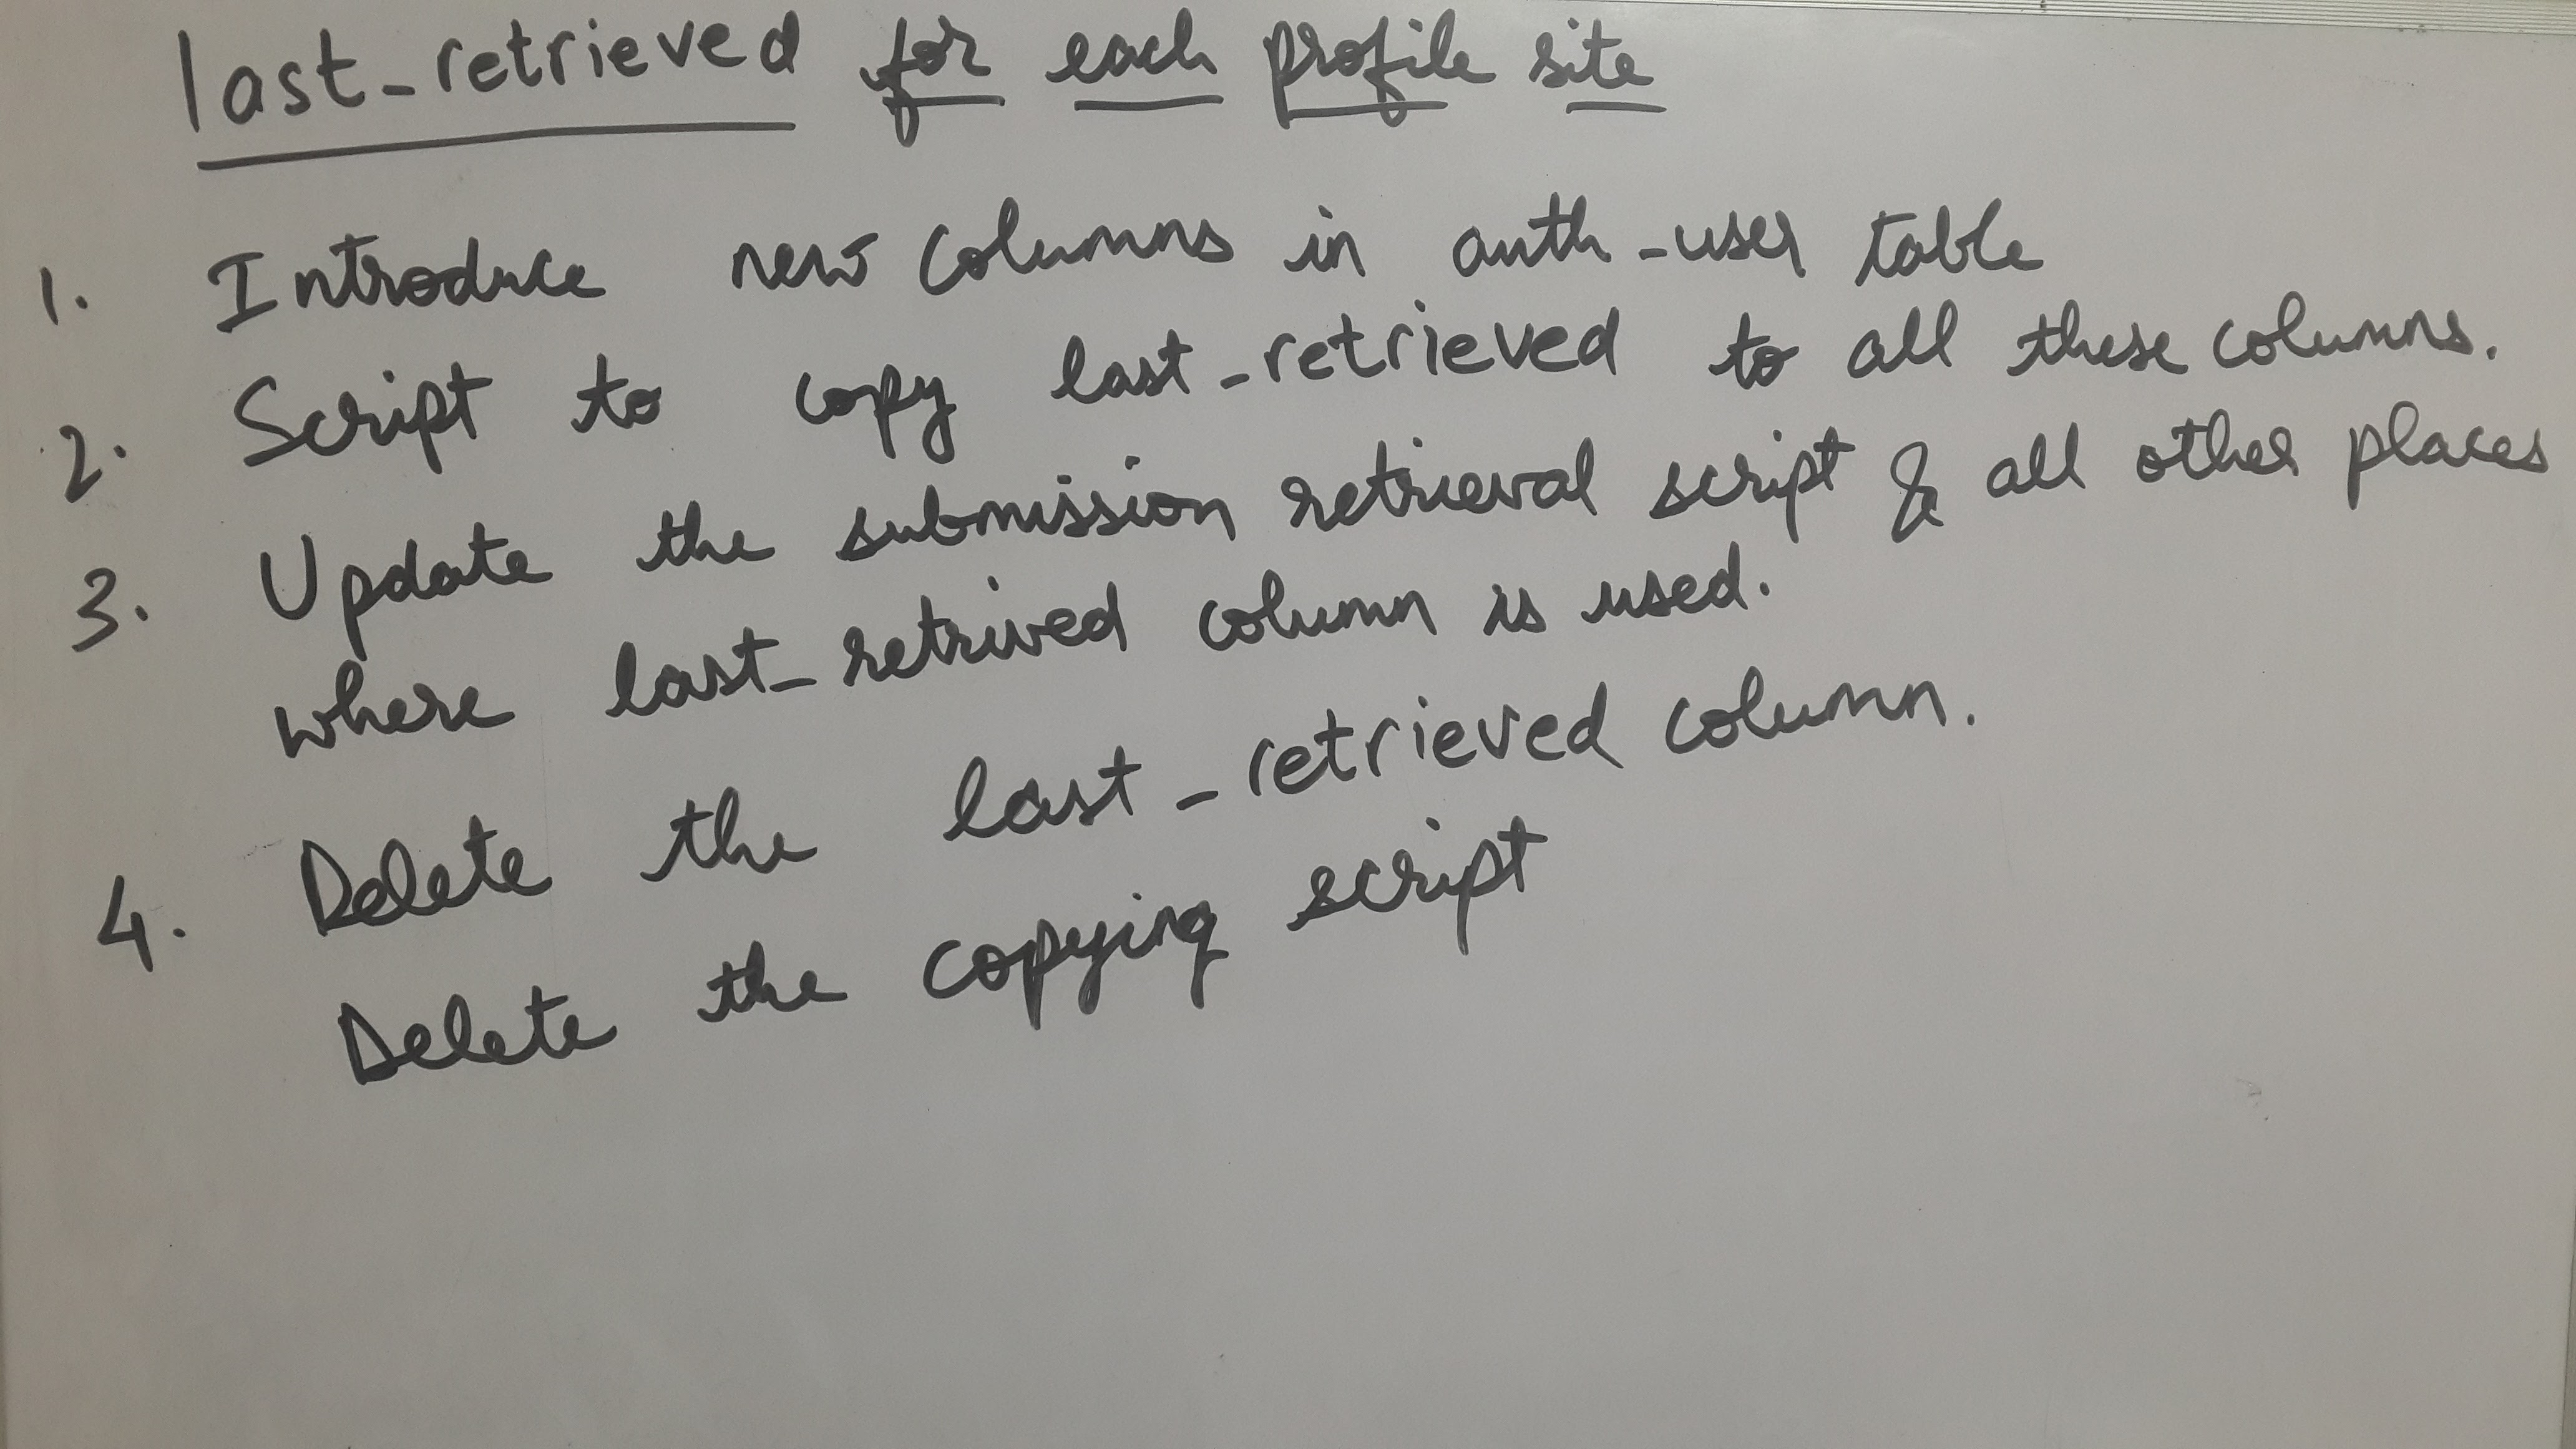 last_retrieved for each profile site
1. Introduce new columns in auth_user table
2. Script to copy last_retrieved to all these columns.
3. Update the submission retrieval script & all other places
where last_retrived column is used.
4. Delete the last_retrieved column.
Delete the copying script